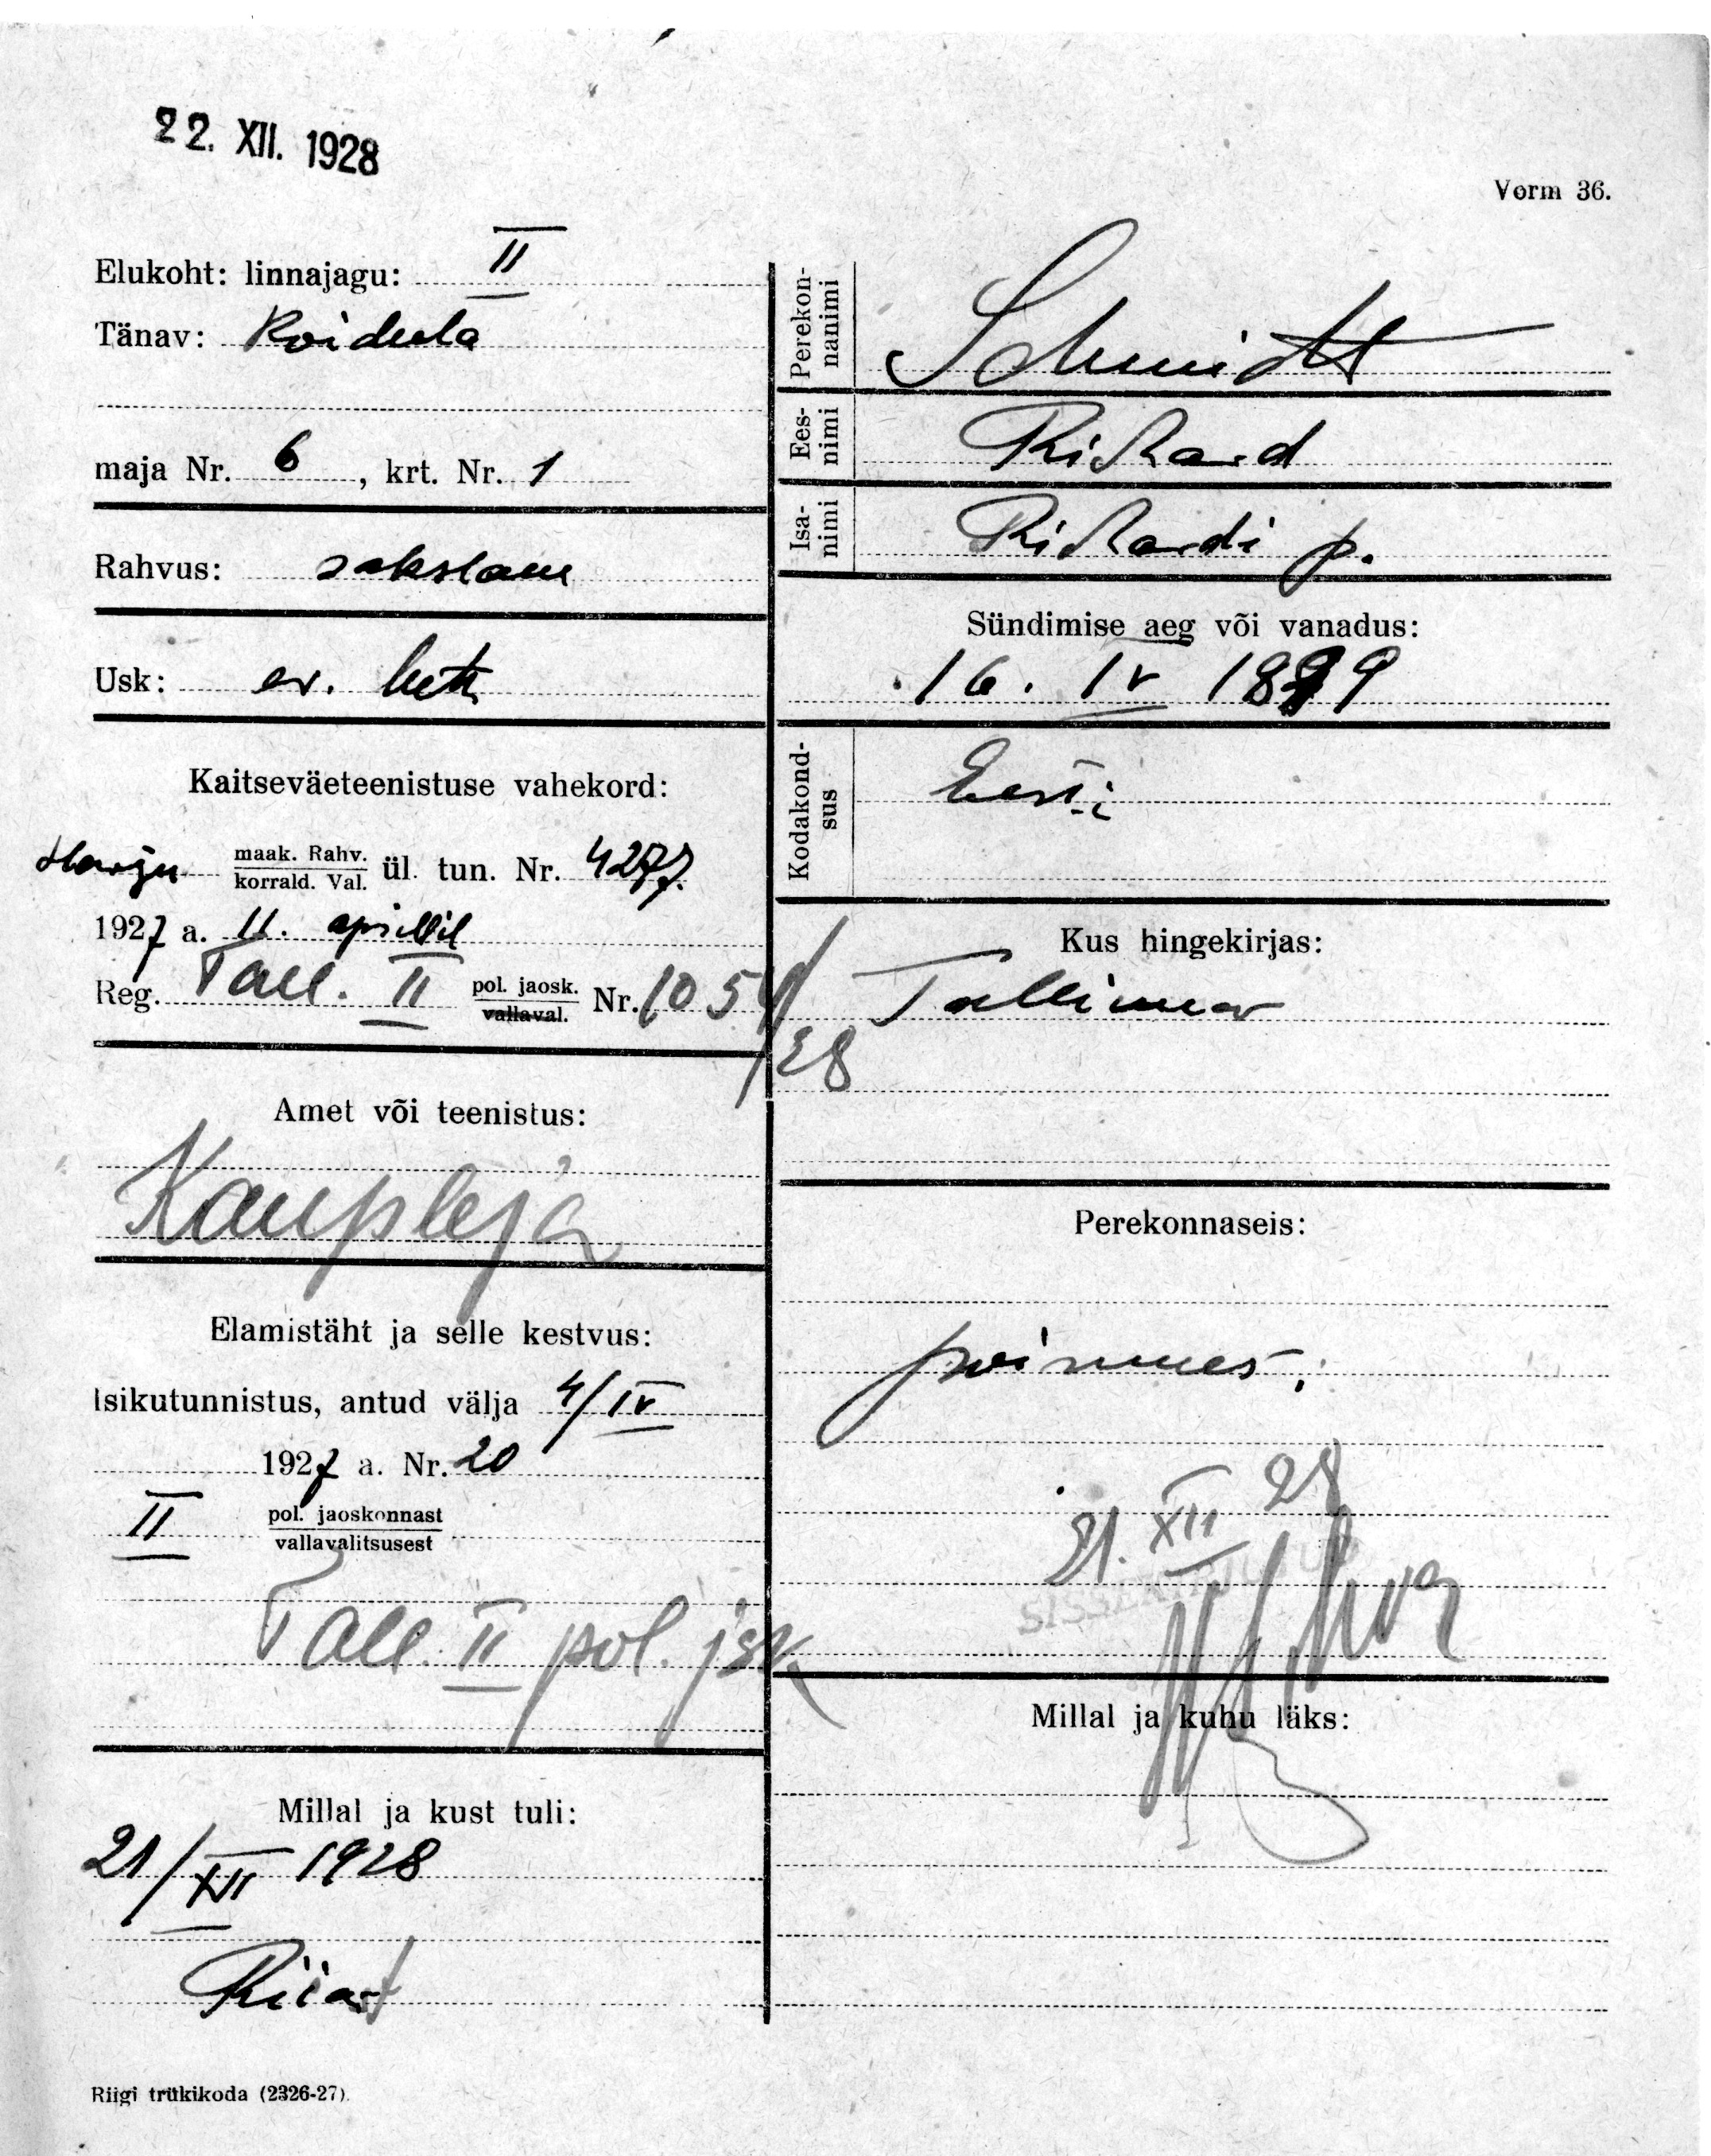 22. XII. 1928
Vorm 36.
Elukoht: linnajagu: II
Tänav: Koidula
maja Nr. 6, krt. Nr. 1
Rahvus: sakslane
Usk: ev. luth.
Kaitseväeteenistuse vahekord:
Harju maak. Rahv. korrald. Val. ül. tun. Nr. 4277.
1927 a. 11. aprillil
Reg. Tall. II pol. jaosk. vallaval. Nr. 1054/28
Amet või teenistus:
Kaupleja
Elamistäht ja selle kestvus:
Isikutunnistus, antud välja 4/IV
1927 a. Nr. 20
II pol. jaoskonnast
vallavalitsusest
Tall. II pol. jsk.
Millal ja kust tuli:
21/XII 1928
Riiast
Riigi trükikoda (2326-27).
Perekon-
nanimi
Schmidt
Ees-
nimi
Richard
Isa-
nimi
Richardi p.
Sündimise aeg või vanadus:
16. IV 1899
Kodakond-
sus
Eesti
Kus hingekirjas:
Tallinnas
Perekonnaseis:
poissmees.
21. XII 28
Millal ja kuhu läks: